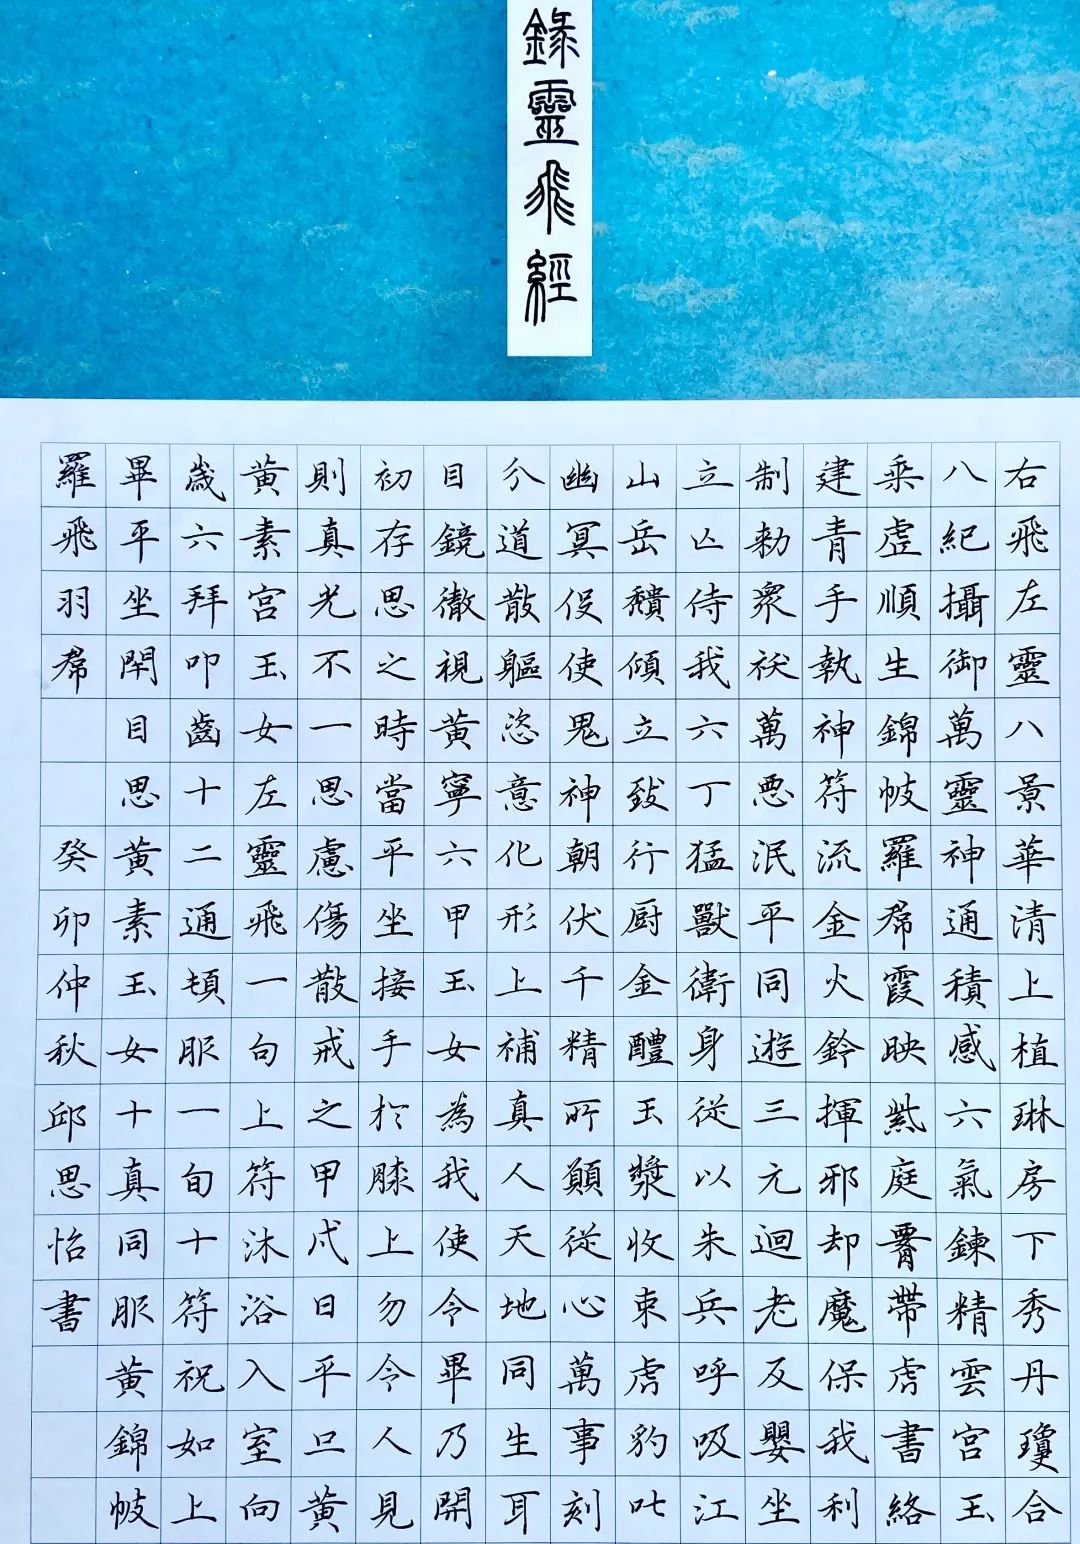 錄靈飛經
右飛左靈八景華清上植琳房下秀丹瓊合
八紀攝御萬靈神通積感六氣鍊精雲宮玉
乘虛順生錦帔羅帬霞映紫庭腎帶虎書絡
建青手執神符流金火鈴揮邪却魔保我利
制勑衆祅萬惡泯平同遊三元迴老反嬰坐
立亡侍我六丁猛獸衛身從以朱兵呼吸江
山岳穨傾立致行厨金醴玉漿收束虎豹叱
幽冥役使鬼神朝伏千精所願從心萬事刻
分道散軀恣意化形上補真人天地同生耳
目鏡徹視黃寧六甲玉女為我使令畢乃開
初存思之時當平坐接手於膝上勿令人見
則真光不一思慮傷散戒之甲戌日平旦黃
黃素宮玉女左靈飛一旬上符沐浴入室向
歲六拜叩齒十二通頓服一旬十符祝如上
畢平坐閉目思黃素玉女十真同服黃錦帔
羅飛羽帬
癸卯仲秋邱思怡書